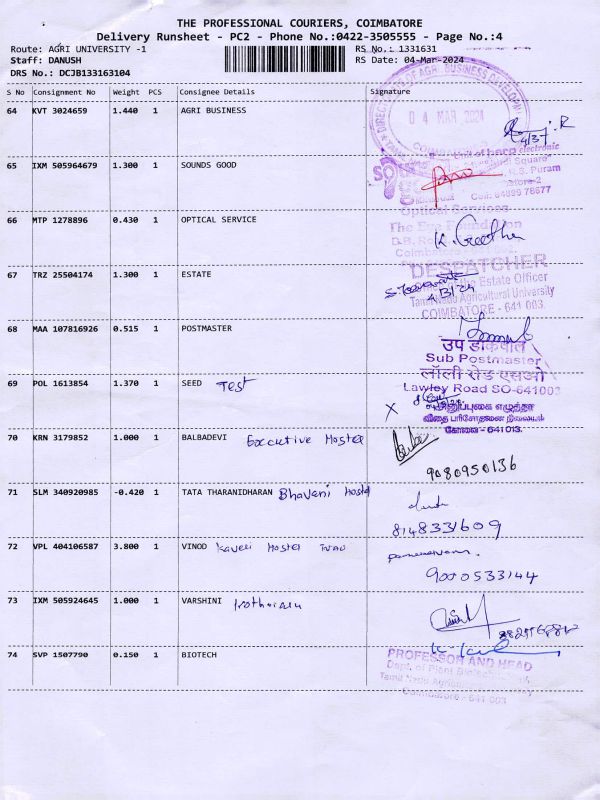 THE PROFESSIONAL COURIERS, COIMBATORE
Delivery Runsheet - PC2 - Phone No.:0422-3505555 - Page No.:4
Route: AGRI UNIVERSITY -1 RS No.: 1331631
Staff: DANUSH RS Date: 04-Mar-2024
DRS No.: DCJB133163104
S No Consignment No Weight PCS Consignee Details Signature
64 KVT 3024659 1.440 1 AGRI BUSINESS
04 MAR 2024
65 IXM 505964679 1.300 1 SOUNDS GOOD
R.S. Puram
66 MTP 1278896 0.430 1 OPTICAL SERVICE
Optical Services
The Eye Foundation
K. Geetha
67 TRZ 25504174 1.300 1 ESTATE
DESPATCHER
Estate Officer
Tamil Nadu Agricultural University
COIMBATORE - 641 003.
68 MAA 107816926 0.515 1 POSTMASTER
उप डाकपाल
Sub Postmaster
लॉली रोड एसओ
Lawley Road SO-641003
69 POL 1613854 1.370 1 SEED Test
விதை பரிசோதனை நிலையம்
கோவை - 641 013.
70 KRN 3179852 1.000 1 BALBADEVI Executive Hostel
9080950136
71 SLM 340920985 -0.420 1 TATA THARANIDHARAN Bhavani Hostel
8148331609
72 VPL 404106587 3.800 1 VINOD Kaveri Hostel TNAU
9000533144
73 IXM 505924645 1.000 1 VARSHINI
74 SVP 1507790 0.150 1 BIOTECH
PROFESSOR AND HEAD
Dept. of Plant Biotechnology
Coimbatore - 641 003